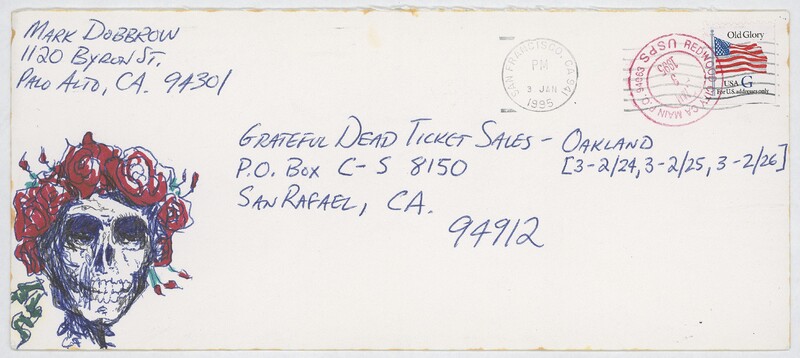 MARK DOBBROW
1120 BYRON ST.
PALO ALTO, CA. 94301
SAN FRANCISCO, CA 941
PM
3 JAN
1995
USPS REDWOOD CITY CA MAIN P.O. 94063
JAN
3
1995
Old Glory
USA G
For U.S. addresses only
GRATEFUL DEAD TICKET SALES - OAKLAND
P.O. BOX C-S 8150 [3-2/24, 3-2/25, 3-2/26]
SAN RAFAEL, CA.
94912